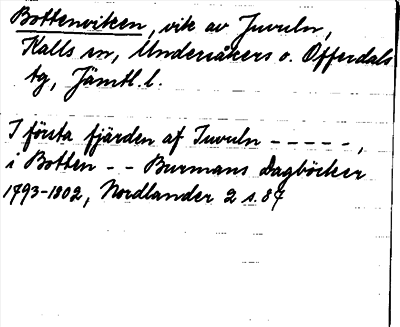 Bottenviken, vik av Juvuln,
Kalls sn, Undersåkers o. Offerdals
tg, Jämtl. l.
I första fjärden af Juvuln - - - - -,
i Botten - - Burmans Dagböcker
1793-1802, Nordlander 2 s. 87